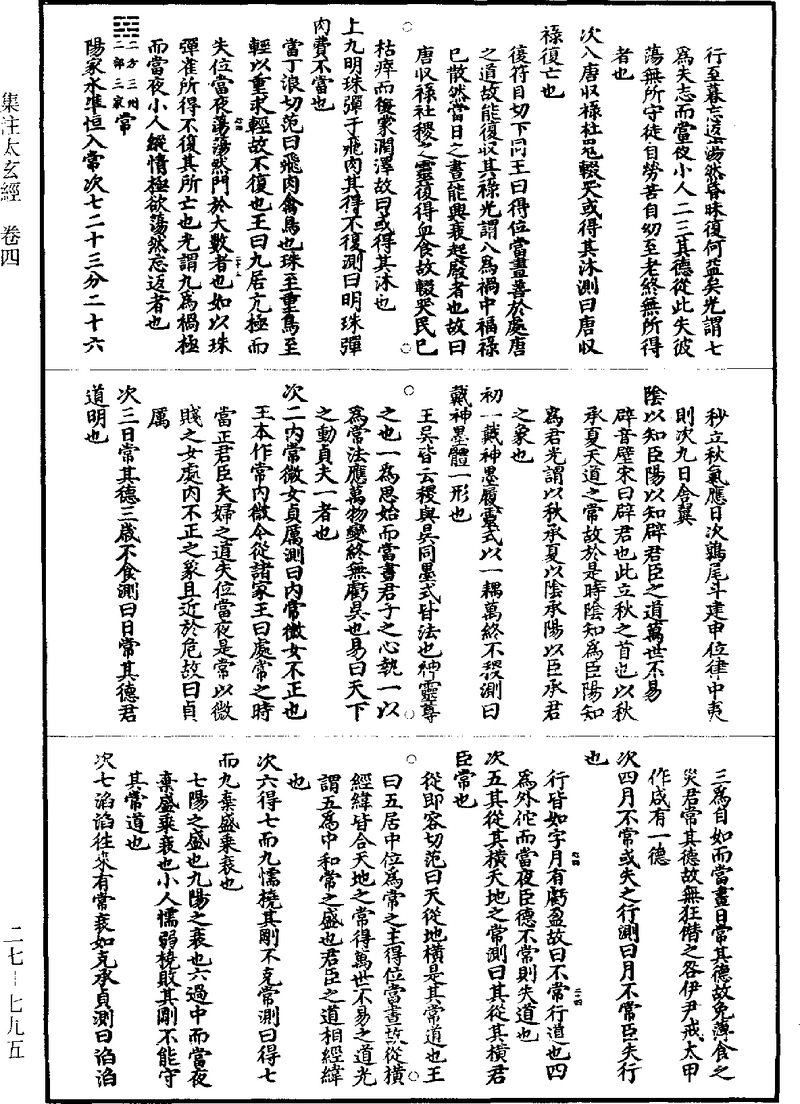 行至暮志返蕩然昏昧復何益矣光謂七
爲失志而當夜小人二三其德從此失彼
蕩無所守徒自勞苦自幼至老終無所得
者也
次八唐収禄社鬼輟哭或得其沐測曰唐収
禄復亡也
復符目切下同王曰得位當晝善於處唐
之道故能復収其禄光謂八爲禍中福禄
已散然當日之晝能興衰起廢者也故曰
唐収禄社稷之靈復得血食故輟哭民已
枯瘁而復蒙潤澤故曰或得其沐也
上九明珠彈于飛肉其得不復測曰明珠彈
肉費不當也
當丁浪切范曰飛肉禽鳥也珠至重鳥至
輕以重求輕故不復也王曰九居亢極而
失位當夜蕩蕩然鬥於大數者也如以珠
彈雀所得不復其所亡也光謂九爲禍極
而當夜小人縱情極欲蕩然忘返者也
二方三州二部三家常
陽家水準恒入常次七二十三分二十六
秒立秋氣應日次鶉尾斗建申位律中夷
則次九日舍翼
陰以知臣陽以知辟君臣之道萬世不易
辟音壁宋曰辟君也此立秋之首也以秋
承夏天道之常故於是時陰知爲臣陽知
爲君光謂以秋承夏以陰承陽以臣承君
之象也
初一戴神墨履靈式以一耦萬終不稷測曰
戴神墨體一形也
王吳皆云稷與昃同墨式皆法也神靈尊
之也一爲思始而當晝君子之心執一以
爲常法應萬物變終無虧昃也易曰天下
之動貞夫一者也
次二内常微女貞厲測曰内常微女不正也
王本作常内微今從諸家王曰處常之時
當正君臣夫婦之道失位當夜是常以微
賤之女處内不正之象且近於危故曰貞
厲
次三日常其德三歲不食測曰日常其德君
道明也
三爲自如而當晝日常其德故免薄食之
災君常其德故無狂僭之咎伊尹戒太甲
作咸有一德
次四月不常或失之行測曰月不常臣失行
也
行皆如字月有虧盈故曰不常行道也四
爲外佗而當夜臣德不常則失道也
次五其從其横天地之常測曰其從其横君
臣常也
從即容切范曰天從地横是其常道也王
曰五居中位爲常之主得位當晝故從横
經緯皆合天地之常得萬世不易之道光
謂五爲中和常之盛也君臣之道相經緯
也
次六得七而九懦橈其剛不克常測曰得七
而九棄盛乘衰也
七陽之盛也九陽之衰也六過中而當夜
棄盛乘衰也小人懦弱橈敗其剛不能守
其常道也
次七滔滔往來有常衰如克承貞測曰滔滔
集注太玄經　卷四
二七—七九五